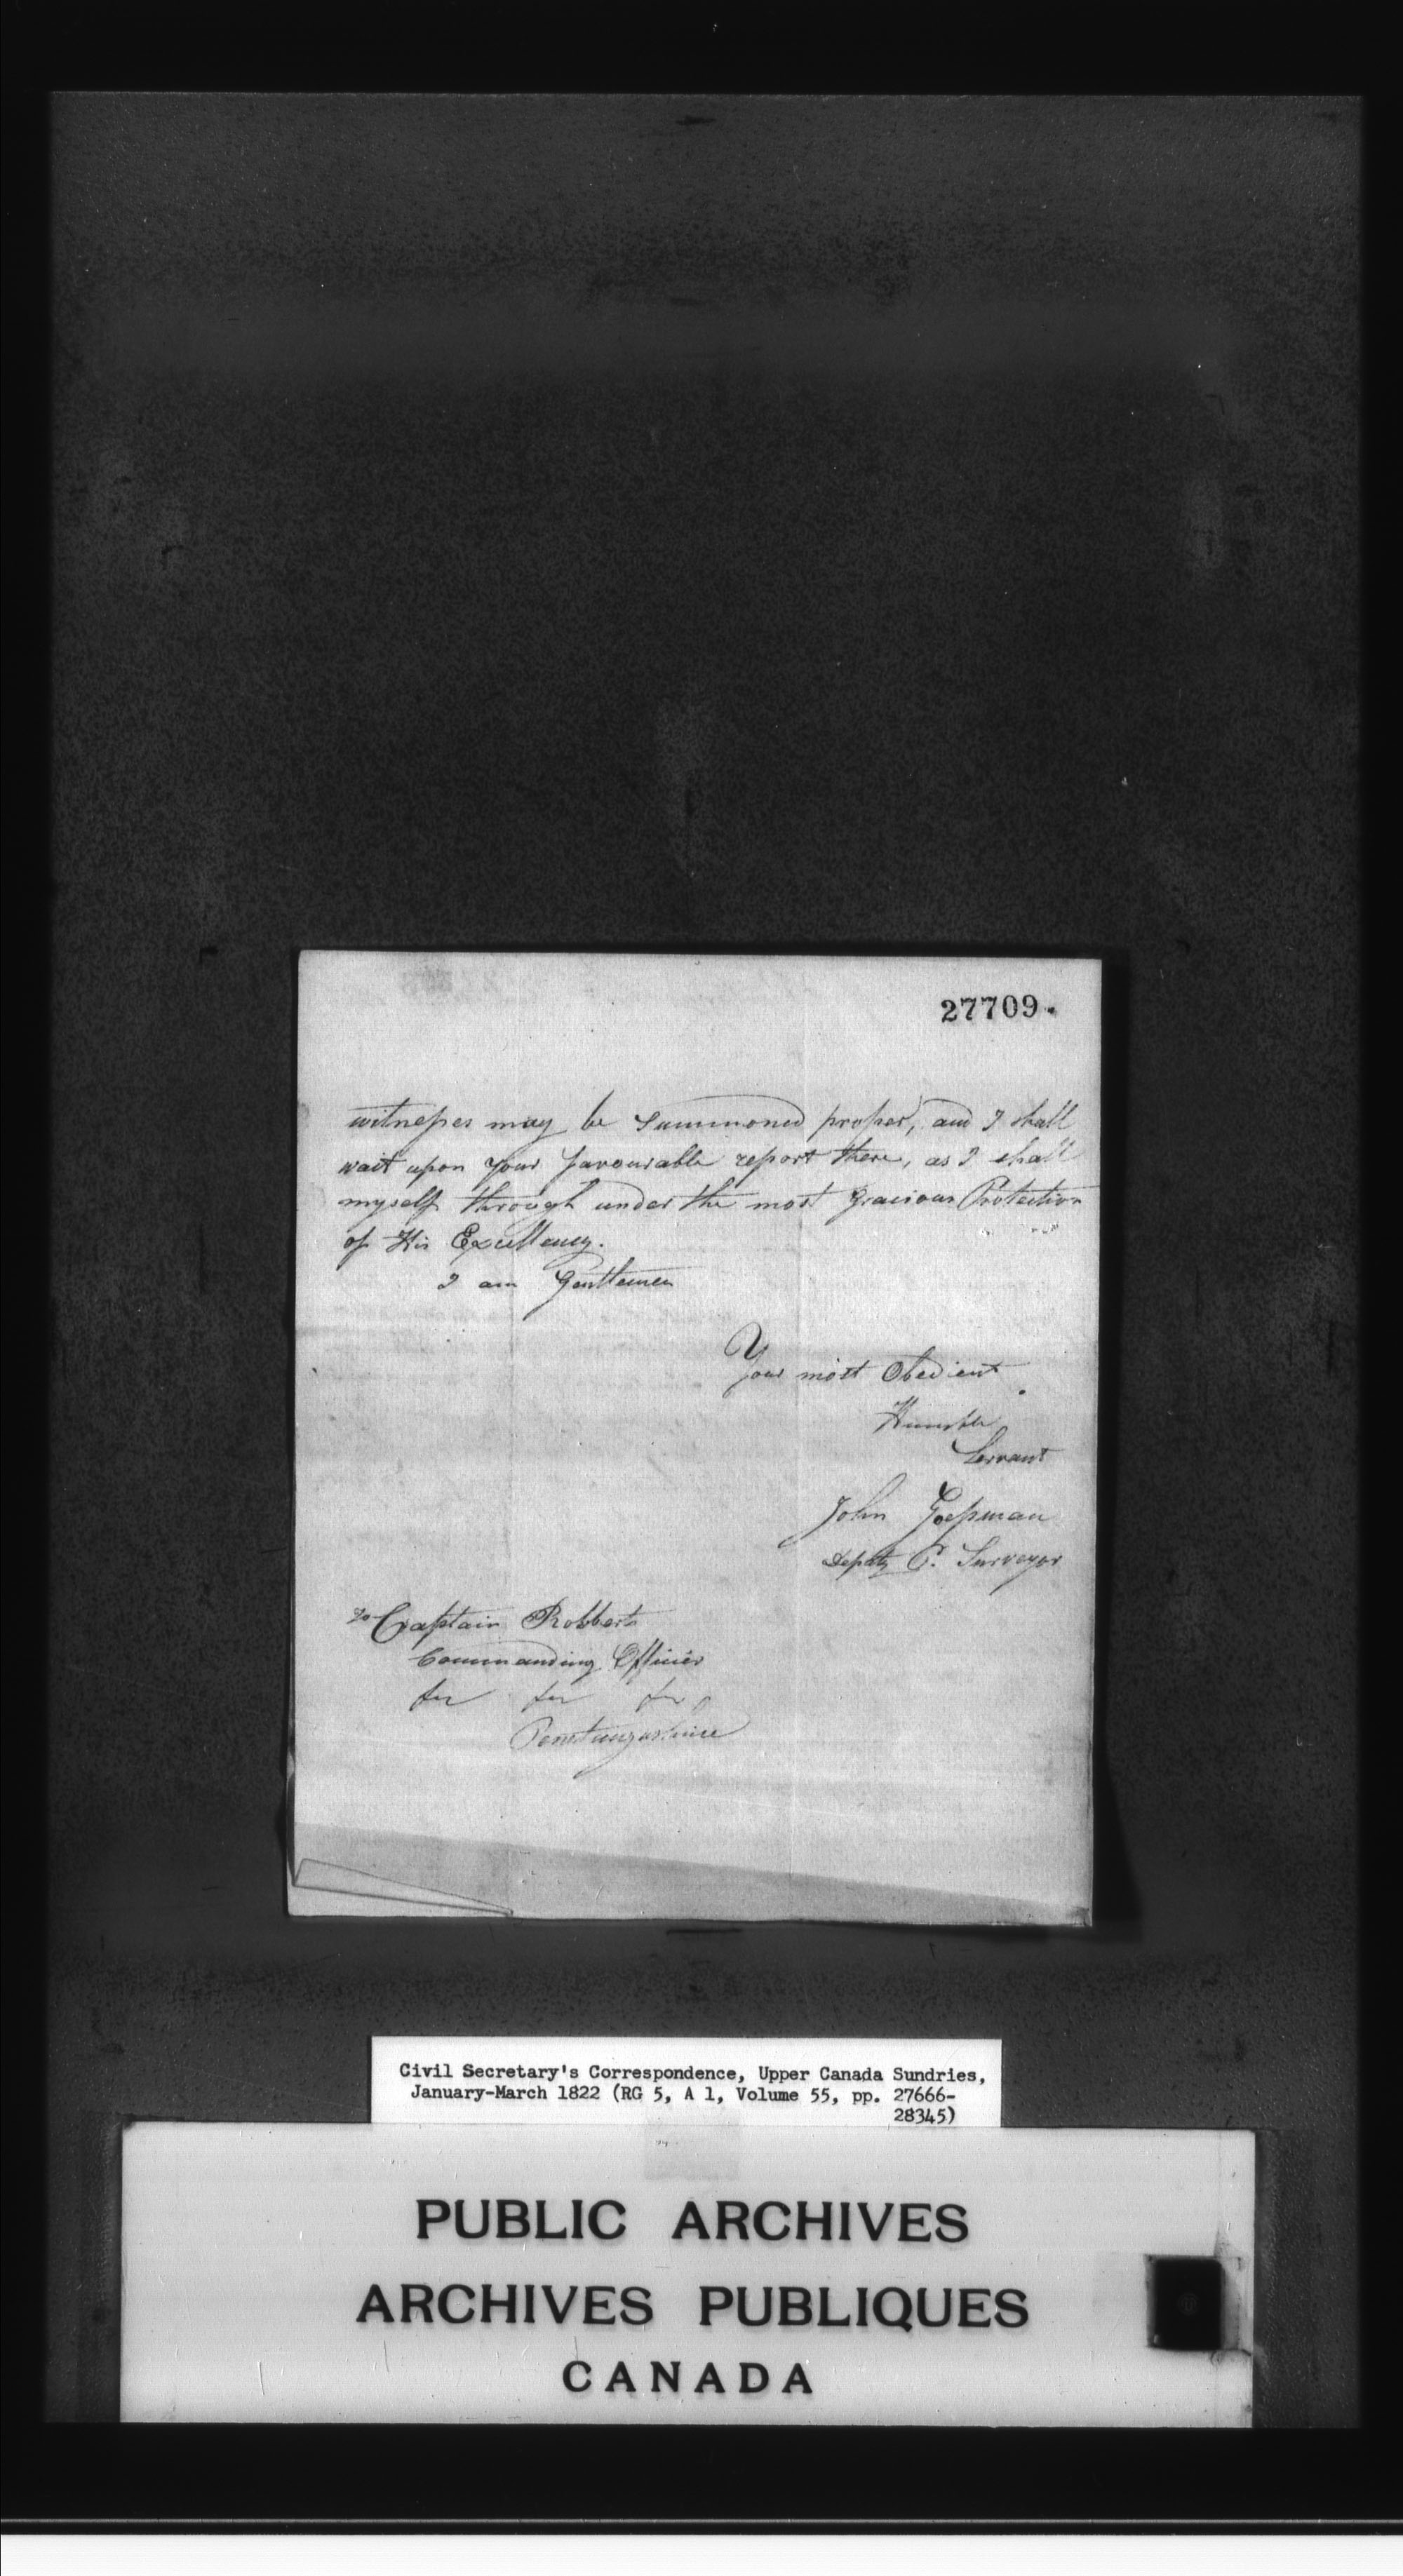 27709.
witnesses may be summoned proper, and I shall
wait upon your favourable report there, as I shall
myself through under the most Gracious Protection
of His Excellency.
I am Gentlemen
Your most Obedient
Humble
Servant
John Goessman
Deputy P. Surveyor
To Captain Robberts
Commanding Officier
Civil Secretary's Correspondence, Upper Canada Sundries,
January-March 1822 (RG 5, A 1, Volume 55, pp. 27666-
28345)
PUBLIC ARCHIVES
ARCHIVES PUBLIQUES
CANADA